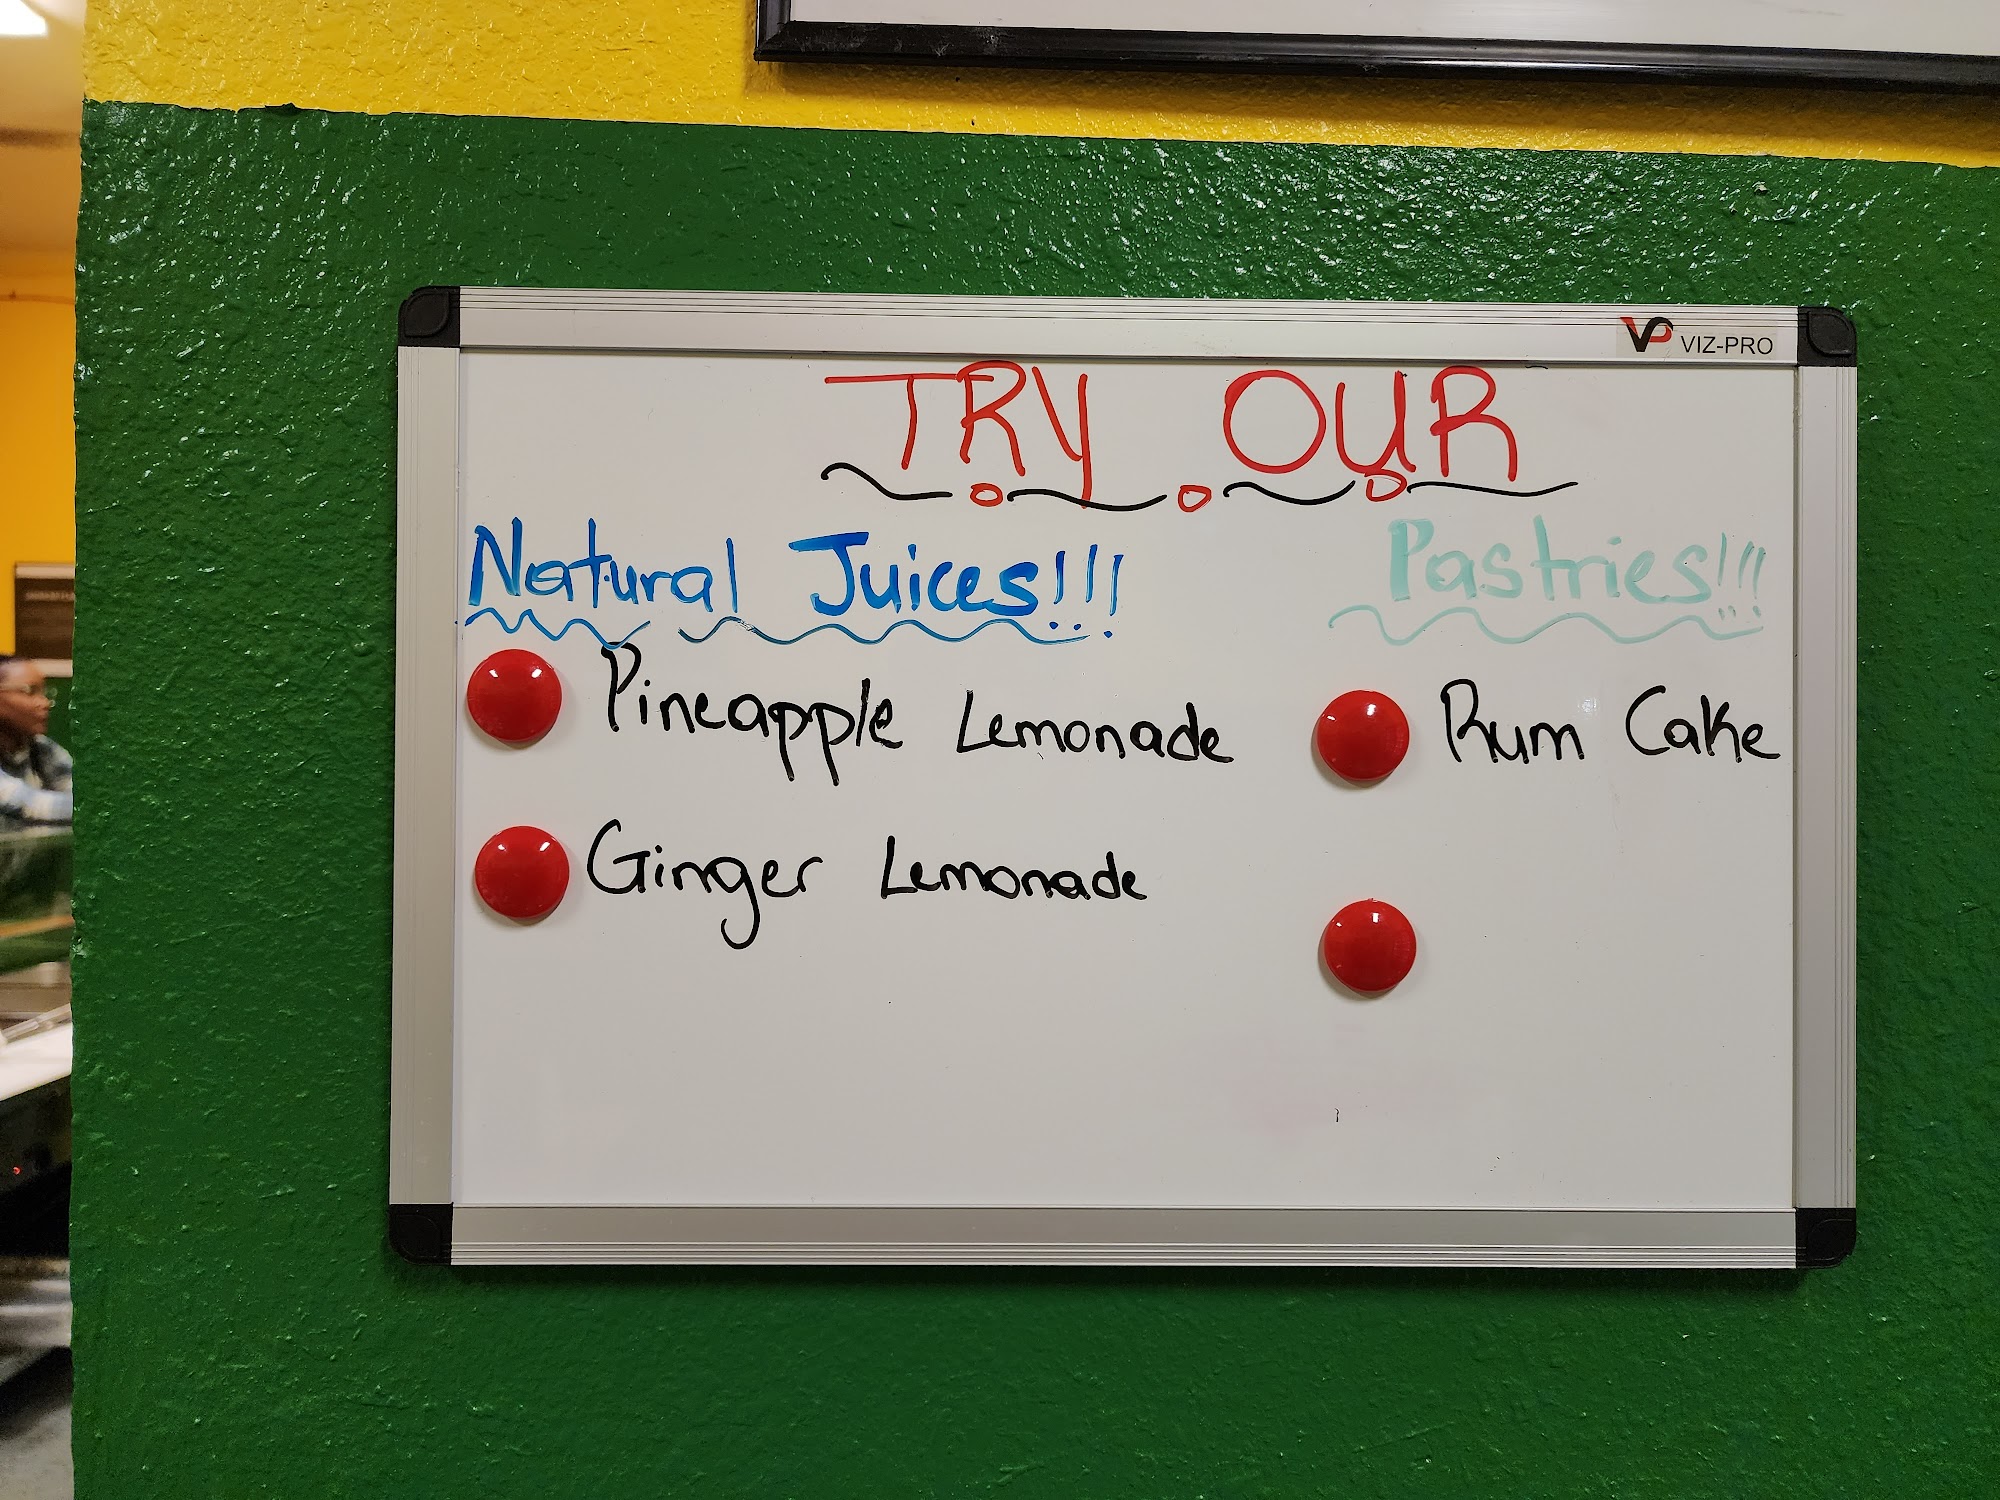 VIZ-PRO
TRY OUR
Natural Juices!!!
Pineapple Lemonade
Ginger Lemonade
Pastries!!!
Rum Cake